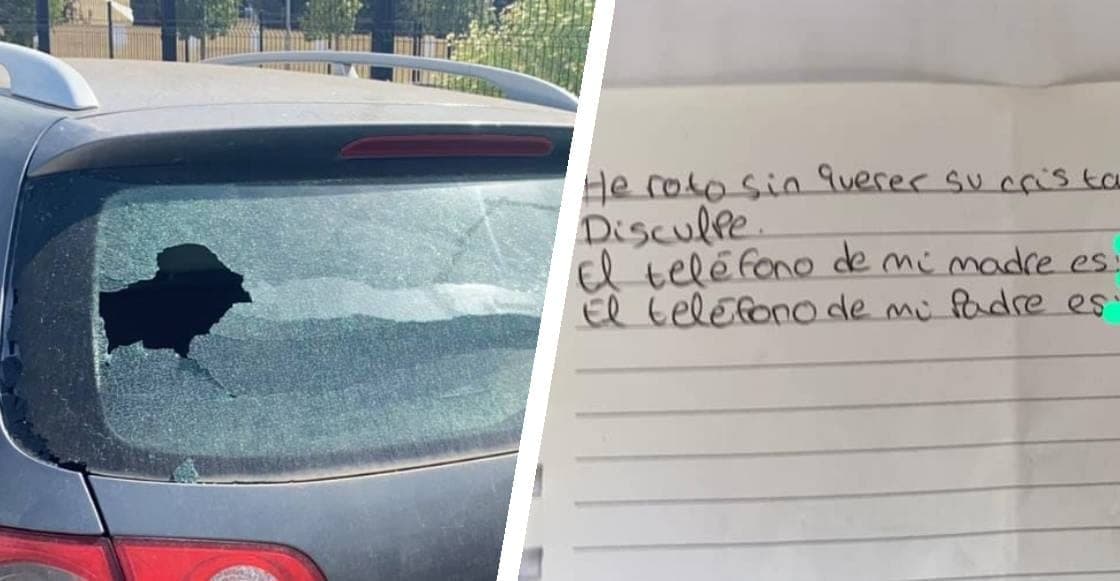 He roto sin querer su crista
Disculpe.
El teléfono de mi madre es:
El teléfono de mi padre es